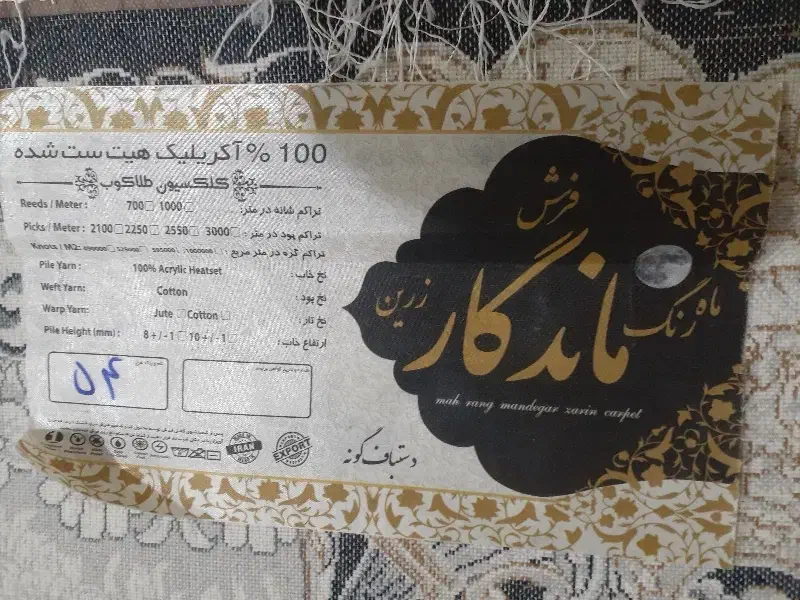 100 % آکریلیک هیت ست شده
کلکسیون طلاکوب
Reeds / Meter : 700 1000 تراکم شانه در متر :
Picks / Meter : 2100 2250 2550 3000 تراکم پود در متر :
Knots / M2: تراکم گره در متر مربع :
Pile Yarn : 100% Acrylic Heatset نخ خاب :
Weft Yarn: Cotton نخ پود :
Warp Yarn: Jute Cotton نخ تار :
Pile Height (mm) : 8 + / - 1 10 + / - 1 ارتفاع خاب :
۵۴
IRAN
EXPORT
دستباف گونه
فرش
ماندگار
زرین
ماه رنگ
mah rang mandegar zarin carpet